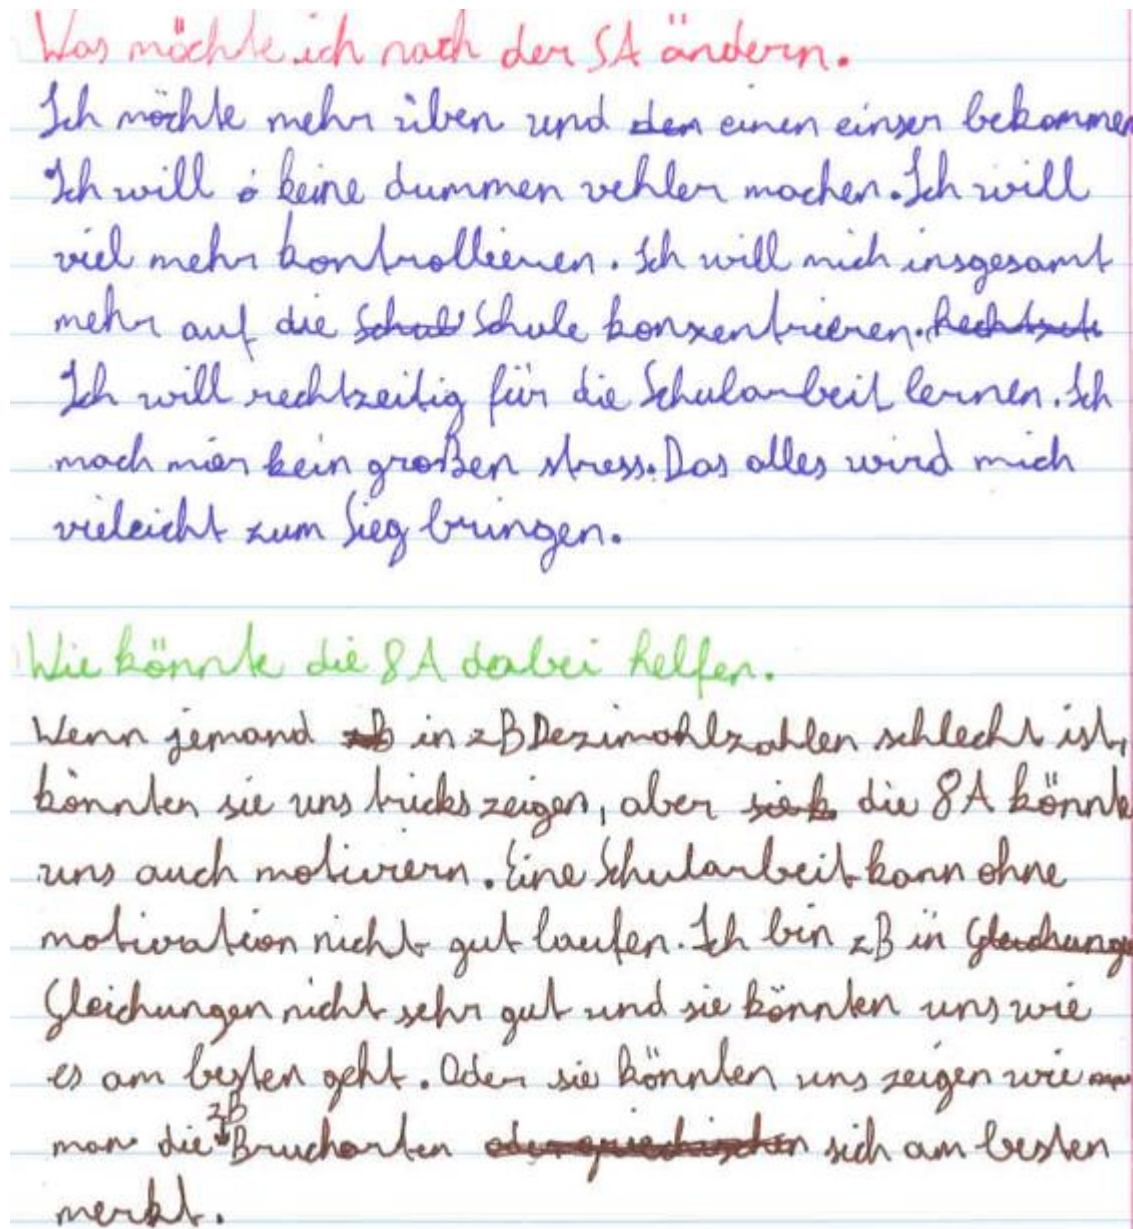 Was möchte ich nach der SA ändern.
Ich möchte mehr üben und den einen einser bekommen
Ich will keine dummen vehler machen. Ich will
viel mehr kontrollieren. Ich will mich insgesamt
mehr auf die Schul Schule konzentrieren. Rechtzeit
Ich will rechtzeitig für die Schularbeit lernen. Ich
mach mir kein großen stress. Das alles wird mich
vieleicht zum Sieg bringen.
Wie könnte die 8A dabei helfen.
Wenn jemand zB in zB Dezimahlzahlen schlecht ist,
könnten sie uns tricks zeigen, aber die 8A könnte
uns auch motiviern. Eine Schularbeit kann ohne
motivation nicht gut laufen. Ich bin zB in Gleichunge
Gleichungen nicht sehr gut und sie könnten uns wie
es am besten geht. Oder sie könnten uns zeigen wie
man die zB Bruchorten sich am besten
merkt.